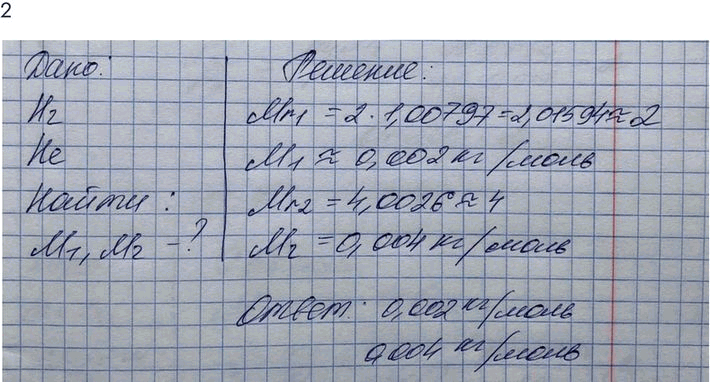 2
Дано:
H2
He
Найти:
M1, M2 - ?
Решение:
Mr1 = 2 · 1,00797 = 2,01594 ≈ 2
M1 ≈ 0,002 кг/моль
Mr2 = 4,0026 ≈ 4
M2 = 0,004 кг/моль
Ответ: 0,002 кг/моль
0,004 кг/моль